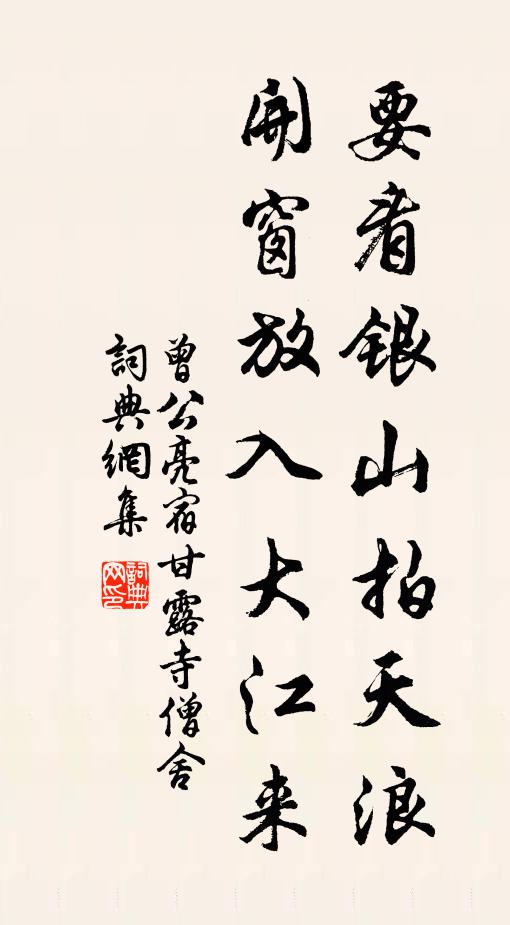 要看銀山拍天浪
開窗放入大江来
曾公亮宿甘露寺僧舍
詞典網集
詞典网印